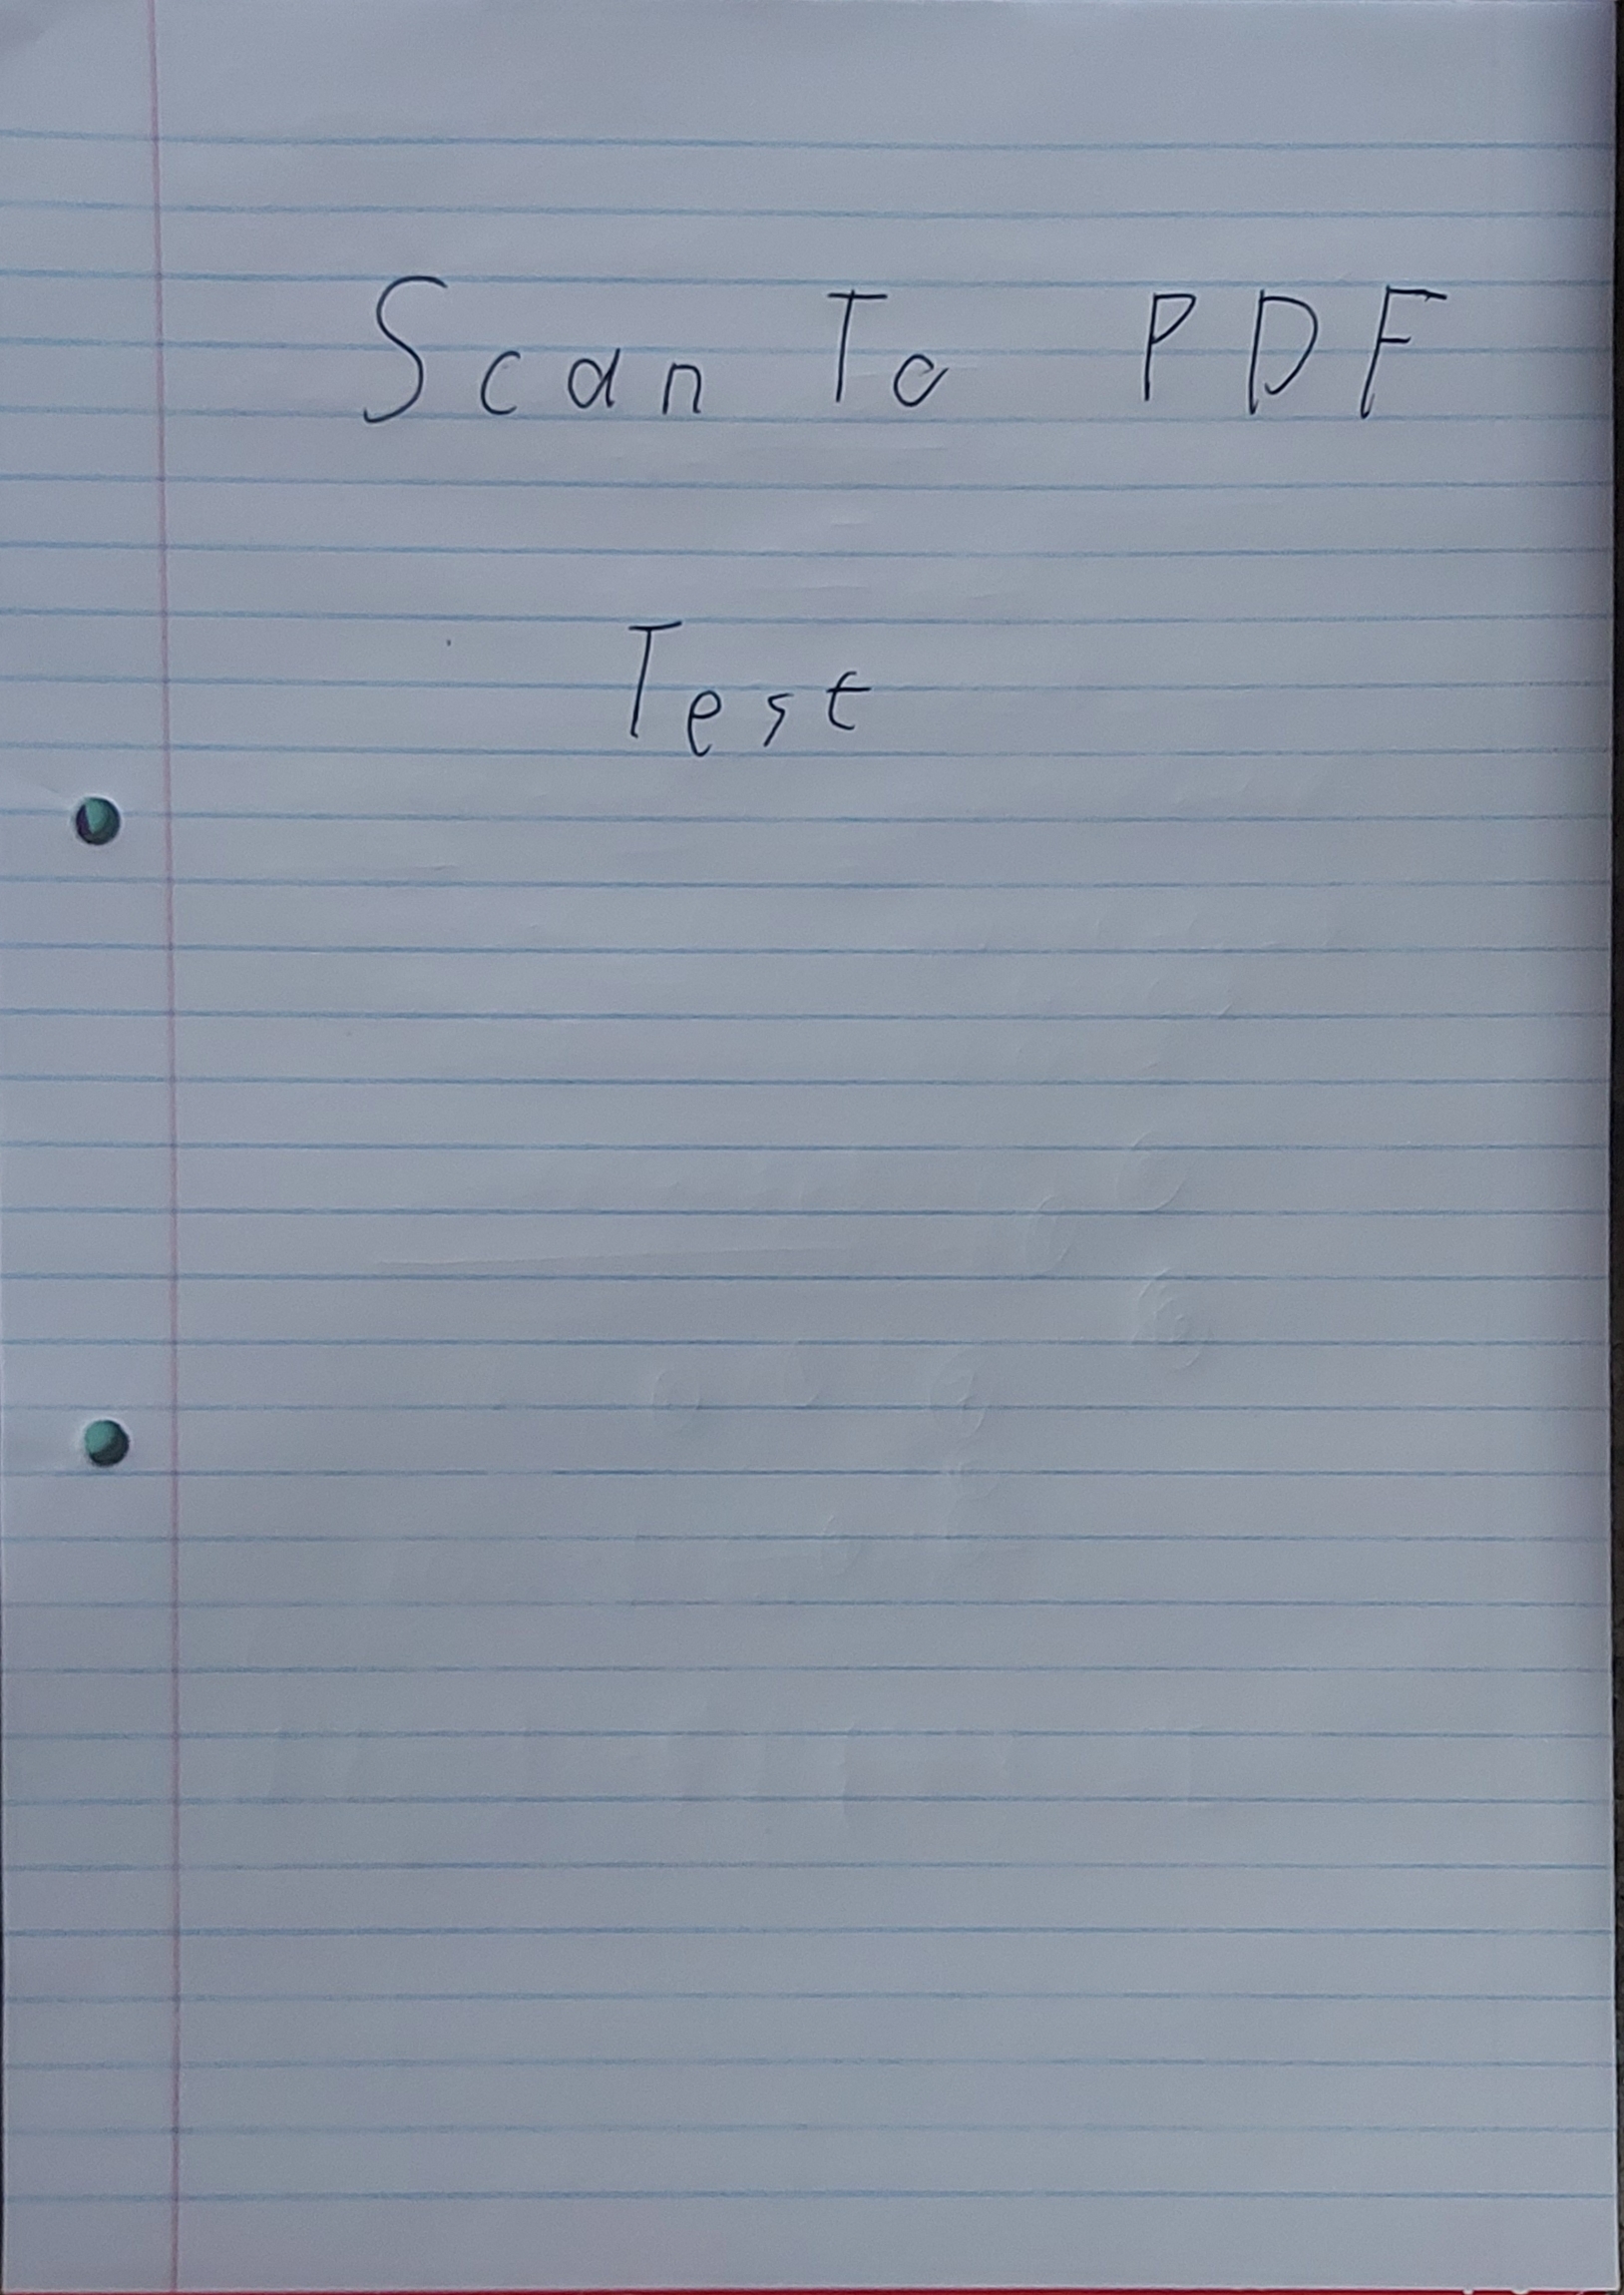 Scan To PDF
Test